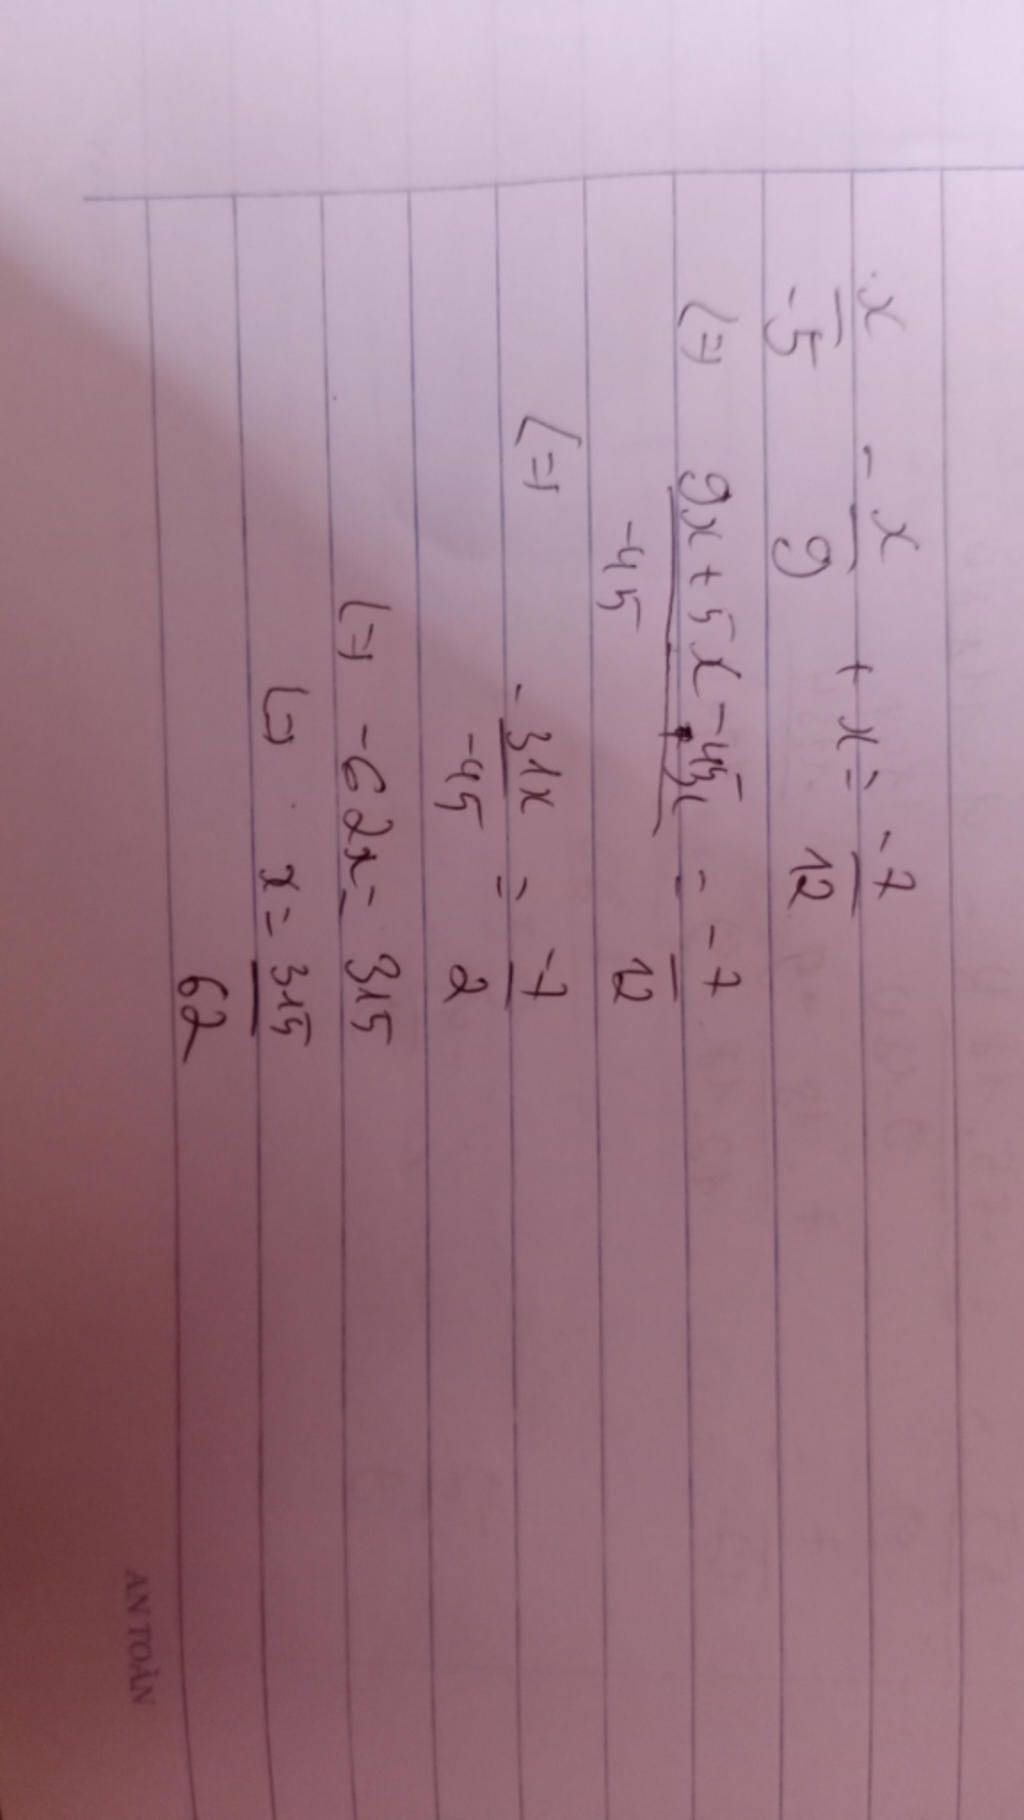 x/-5 - x/9 + x = -7/12
(=) (9x + 5x - 45x)/-45 = -7/12
(=) -31x/-45 = -7/2
(=) -62x = 315
(=) x = 315/62
AN TOÀN